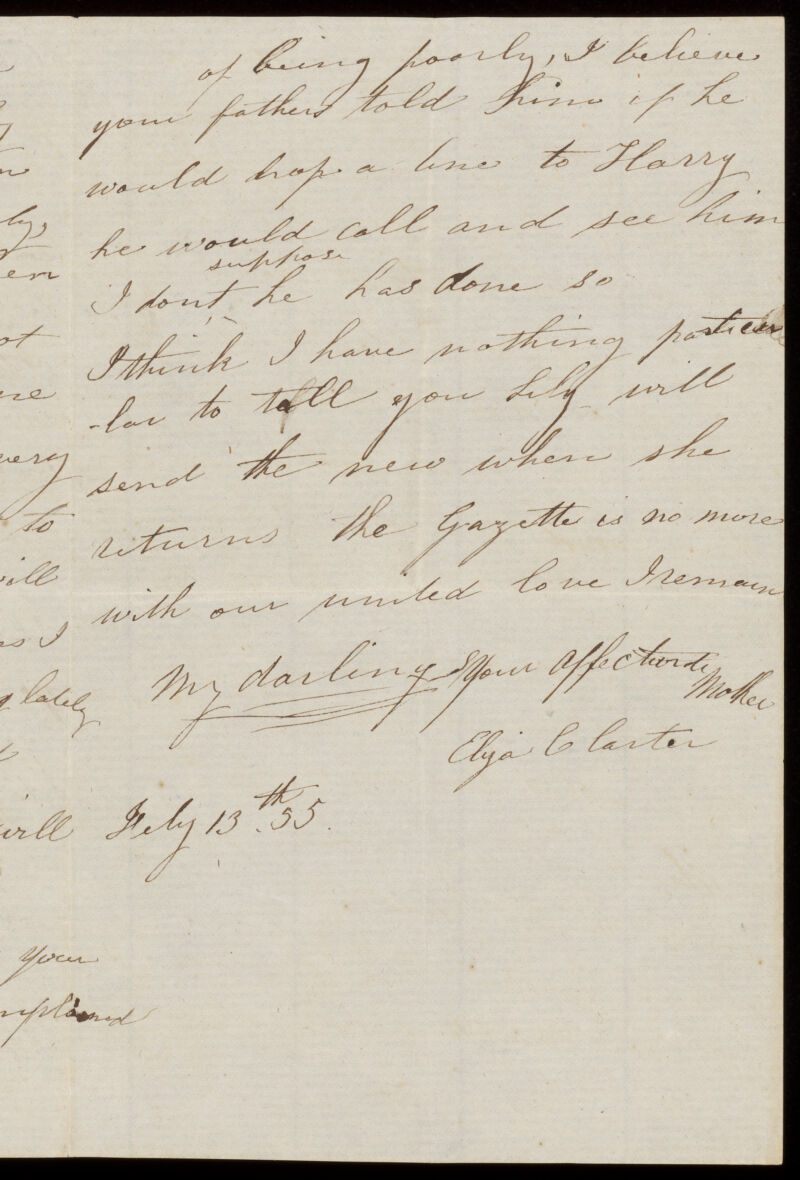 of being poorly, I believe
your father told him if he
would drop a line to Harry
he would call and see him
suppose
I dont he has done so
I think I have nothing particu
-lar to tell you Lily will
send the new when she
returns the Gazette is no more
with our united love I remain
My darling Your affectionate
Mother
Eliza C Carter
Feby 13th. 55.
ly,
ot
very
to
will
as I
lately
will
your